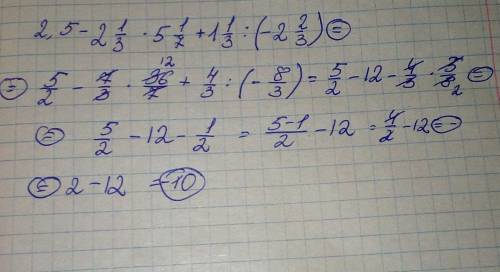 2,5 - 2 1/3 · 5 1/7 + 1 1/3 : (-2 2/3) =
= 5/2 - 7/3 · 36/7 12 + 4/3 : (-8/3) = 5/2 - 12 - 4/3 · 3/8 2 =
= 5/2 - 12 - 1/2 = 5-1/2 - 12 = 4/2 - 12 =
= 2 - 12 = -10